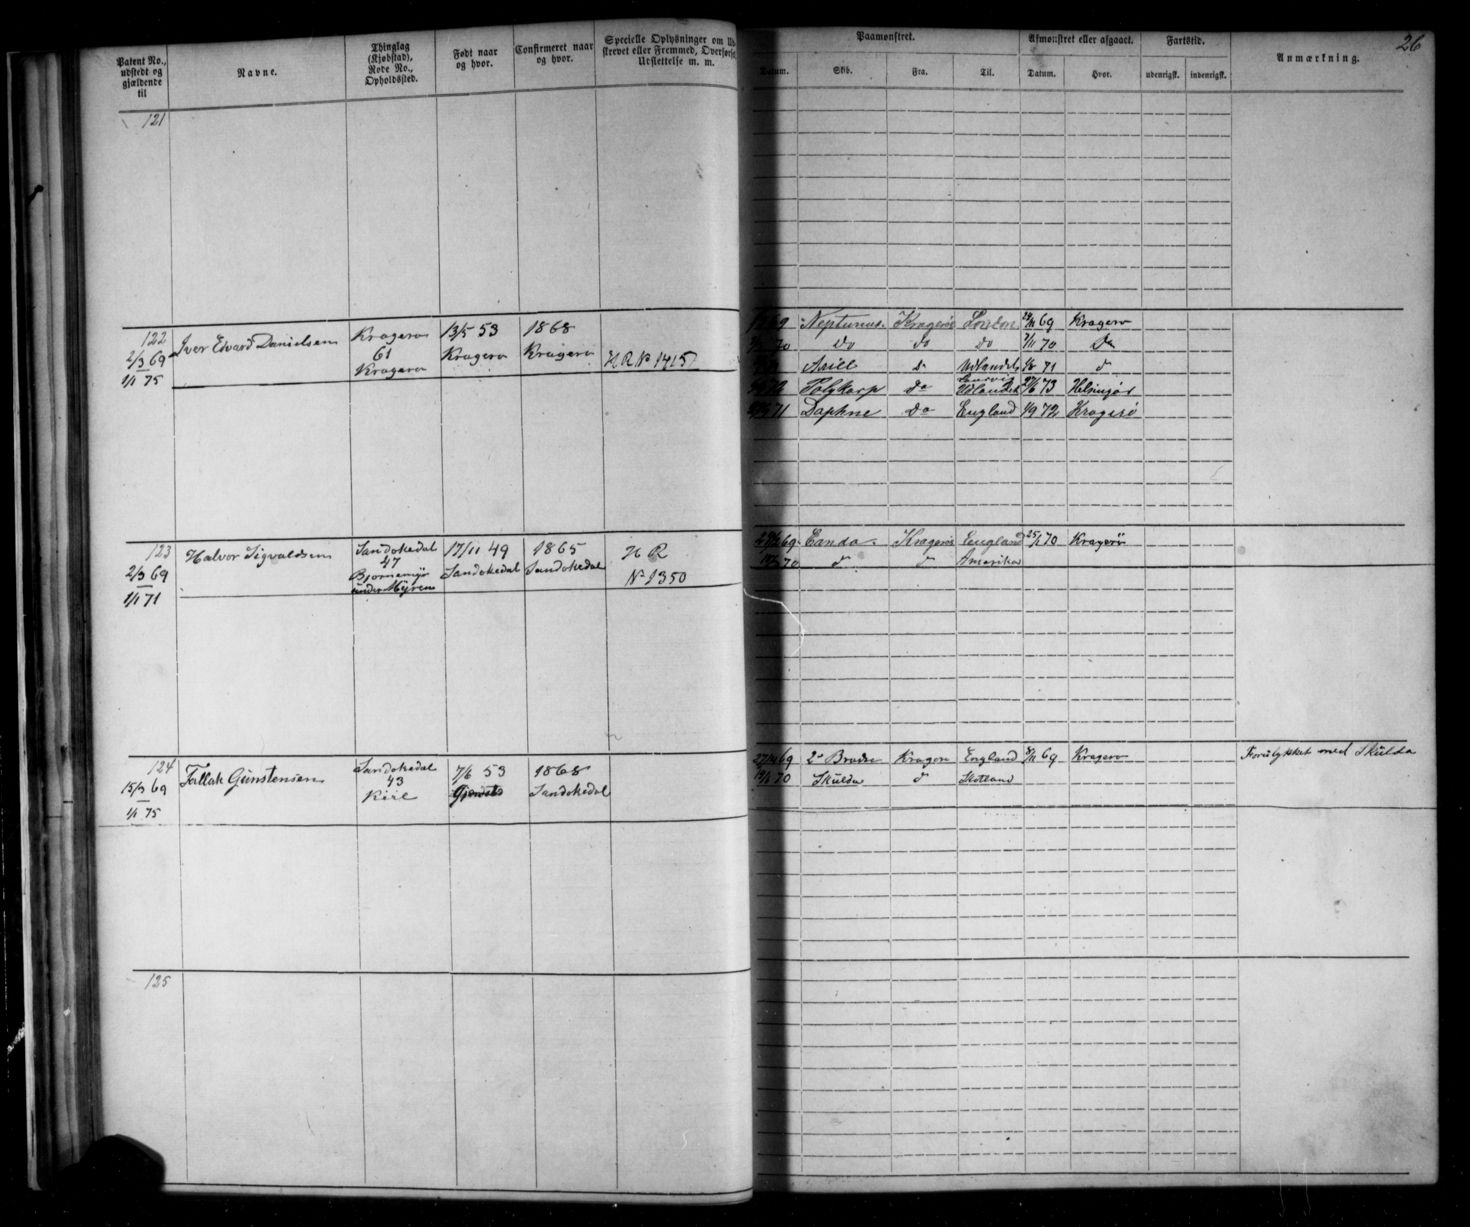 26
Patent No., udstedt og gjældende til
Navne.
Thinglag (Kjøbstad), Rode No., Opholdssted.
Født naar og hvor.
Confirmeret naar og hvor.
Specielle Oplysninger om Ud-
skrevet eller Fremmed, Overførsel,
Udslettelse m. m.
Paamønstret.
Afmønstret eller afgaaet.
Fartstid.
Anmærkning.
Datum.
Skib.
Fra.
Til.
Datum.
Hvor.
udenrigsk.
indenrigsk.
121
122
2/3 69
1/1 75
Iver Edvard Danielsen
Kragerø
61
Kragerø
13/5 53
Kragerø
1868
Kragerø
HR No 1415
69 Neptunus Kragerø London 69 Kragerø
70 do do do 2/11 70 Do
Ariel do Udlandet 71 do
Polykarp do Udlandet 73 Helsingør
71 Daphne do England 1/9 72 Kragerø
123
2/3 69
1/1 71
Halvor Sigvaldsen
Sandøkedal
47
Bjørnemyr
under Myren
17/11 49
Sandøkedal
1865
Sandøkedal
HR
No 1350
69 Kragerø England 70 Kragerö
70 do do Amerika
124
15/3 69
1/1 75
Tallak Gunstensen
Sandøkedal
43
Kiil
7/6 53
1868
Sandøkedal
69 2de Brødre Kragerø England 69 Kragerø
70 Skulda do Skotland
Forulykket med Skulda
125